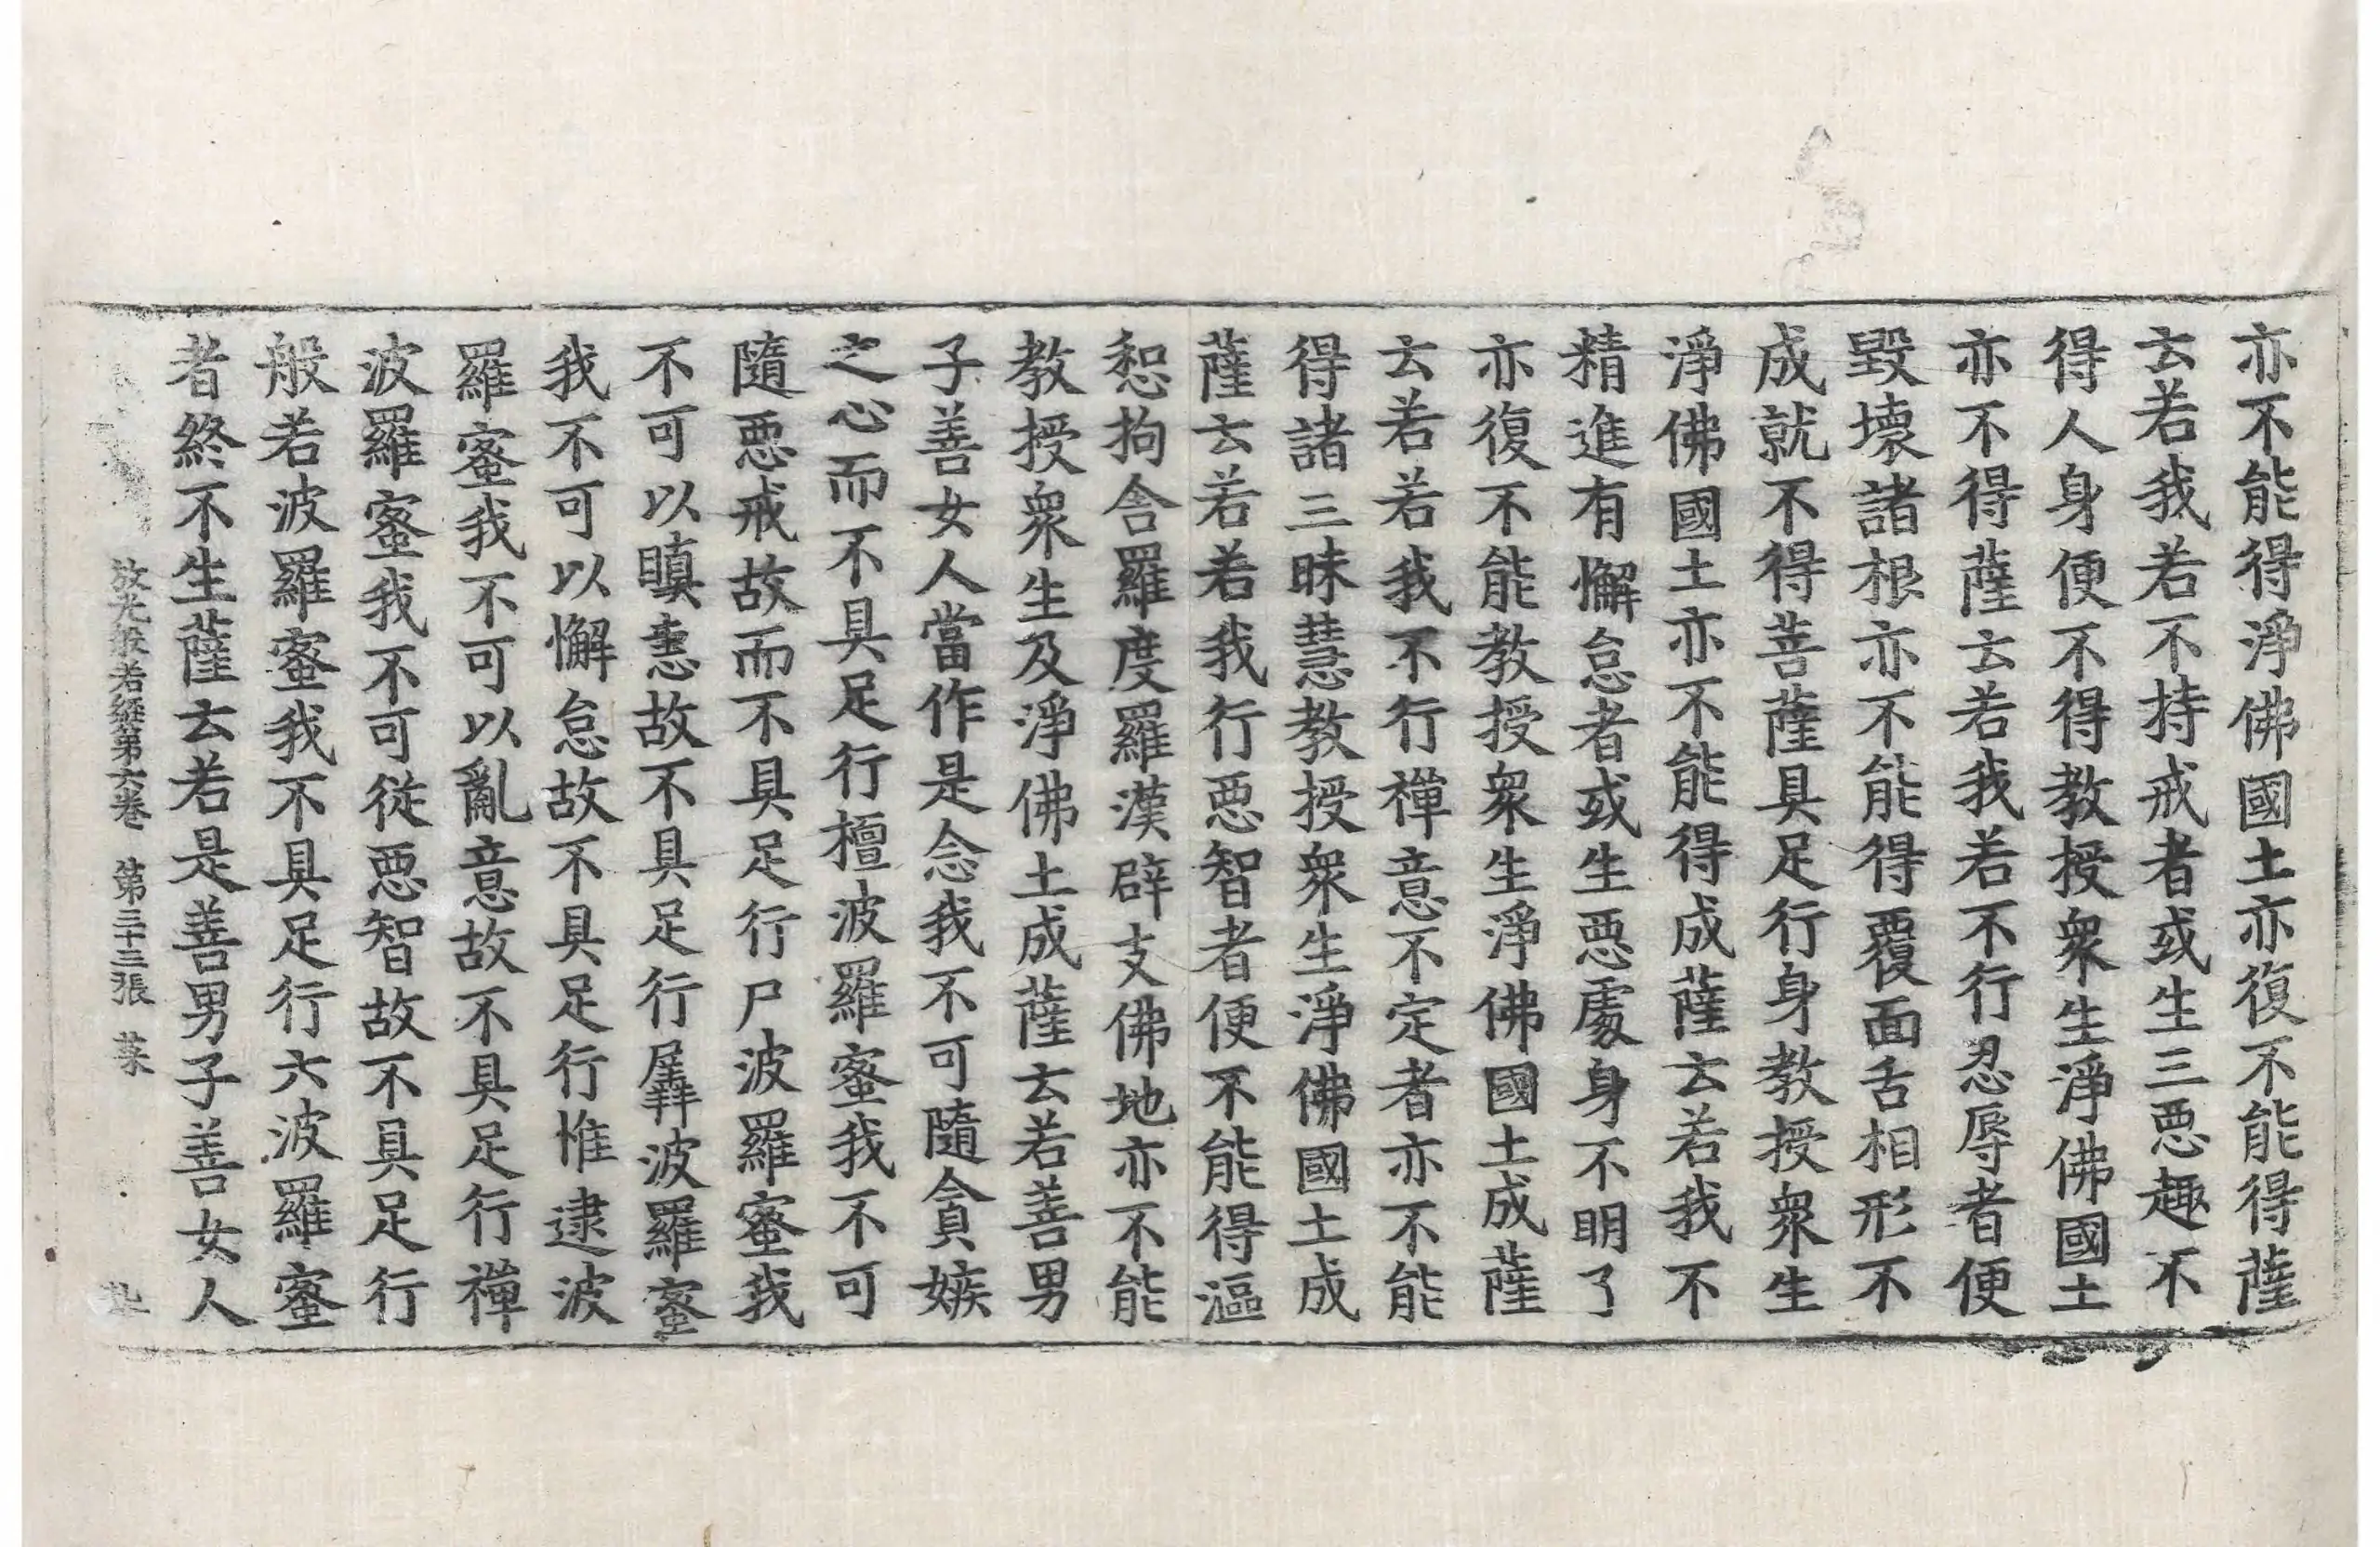 亦不能得淨佛國土亦復不能得薩
云若我若不持戒者或生三惡趣不
得人身便不得教授衆生淨佛國土
亦不得薩云若我若不行忍辱者便
毀壞諸根亦不能得覆面舌相形不
成就不得菩薩具足行身教授衆生
淨佛國土亦不能得成薩云若我不
精進有懈怠者或生惡處身不明了
亦復不能教授衆生淨佛國土成薩
云若若我不行禪意不定者亦不能
得諸三昧慧教授衆生淨佛國土成
薩云若若我行惡智者便不能得漚
惒拘舍羅度羅漢辟支佛地亦不能
教授衆生及淨佛土成薩云若善男
子善女人當作是念我不可隨貪嫉
之心而不具足行檀波羅蜜我不可
隨惡戒故而不具足行尸波羅蜜我
不可以瞋恚故不具足行羼波羅蜜
我不可以懈怠故不具足行惟逮波
羅蜜我不可以亂意故不具足行禪
波羅蜜我不可從惡智故不具足行
般若波羅蜜我不具足行六波羅蜜
者終不生薩云若是善男子善女人
放光般若經第六卷 第三十三張 菜